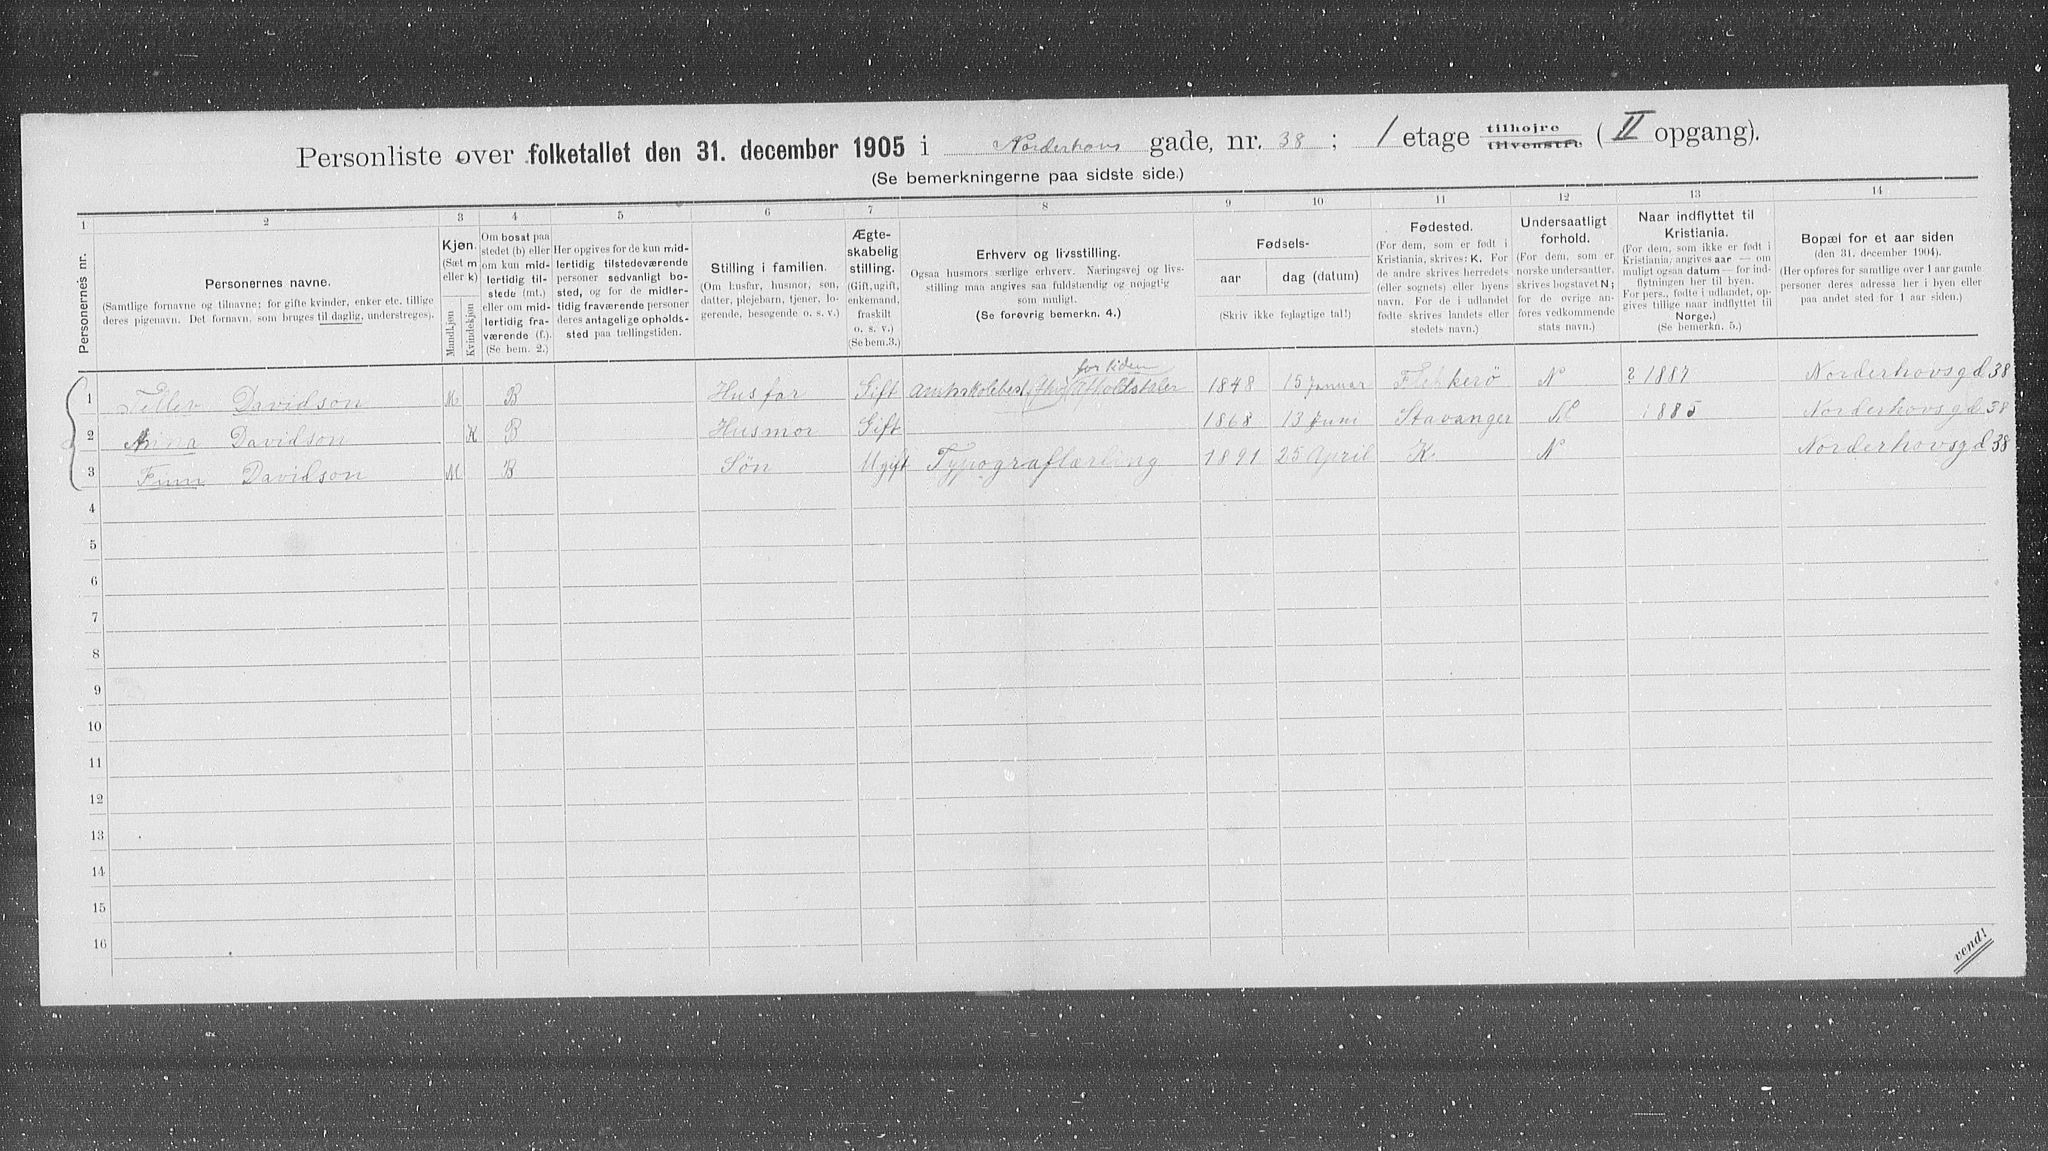 Personliste over folketallet den 31. december 1905 i Norderhovs gade, nr. 38 ; 1 etage tilhøjre tilvenstre ( II opgang).
(Se bemerkningerne paa sidste side.)
1 2 3 4 5 6 7 8 9 10 11 12 13 14
Personernes nr.
Personernes navne.
(Samtlige fornavne og tilnavne; for gifte kvinder, enker etc. tillige
deres pigenavn. Det fornavn, som bruges til daglig, understreges).
Kjøn.
(Sæt m
eller k)
Mandkjøn
Kvindekjøn
Om bosat paa
stedet (b) eller
om kun mid-
lertidig til-
stede (mt.)
eller om mid-
lertidig fra-
værende (f.).
(Se bem. 2.)
Her opgives for de kun mid-
lertidig tilstedeværende
personer sedvanlig bo-
sted, og for de midler-
tidig fraværende personer
deres antagelige opholds-
sted paa tællingstiden.
Stilling i familien.
(Om husfar, husmor, søn,
datter, plejebarn, tjener, lo-
gerende, besøgende o. s. v.)
Ægte-
skabelig
stilling.
(Gift, ugift,
enkemand,
fraskilt
o. s. v.)
(Se bem.3.)
Erhverv og livsstilling.
Ogsaa husmors særlige erhverv. Næringsvej og livs-
stilling maa angives saa fuldstændig og nøjagtig
som muligt.
(Se forøvrig bemerkn. 4.)
Fødsels-
aar dag (datum)
(Skriv ikke fejlagtige tal!)
Fødested.
(For dem, som er født i
Kristiania, skrives: K. For
de andre skrives herredets
(eller sognets) eller byens
navn. For de i udlandet
fødte skrives landets eller
stedets navn.)
Undersaatligt
forhold.
(For dem, som er
norske undersaatter,
skrives bogstavet N;
for de øvrige an-
føres vedkommende
stats navn.)
Naar indflyttet til
Kristiania.
(For dem, som ikke er født i
Kristiania, angives aar — om
muligt ogsaa datum — for ind-
flytningen her til byen.
For pers., fødte i udlandet, op-
gives tillige naar indflyttet til
Norge.)
(Se bemerkn. 5.)
Bopæl for et aar siden
(den 31. december 1904).
(Her opføres for samtlige over 1 aar gamle
personer deres adresse her i byen eller
paa andet sted for 1 aar siden.)
for tiden
1 Tellev Davidson M B Husfar Gift Afholdstaler 1848 15 Januar Flekkerö N ? 1887 Norderhovsgd 38
2 Anna Davidson K B Husmor Gift 1868 13 Juni Stavanger N 1885 Norderhovsgd 38
3 Finn Davidson M B Søn Ugift Typograflærling 1891 25 April K. N Norderhovsgd 38
4
5
6
7
8
9
10
11
12
13
14
15
16
vend!